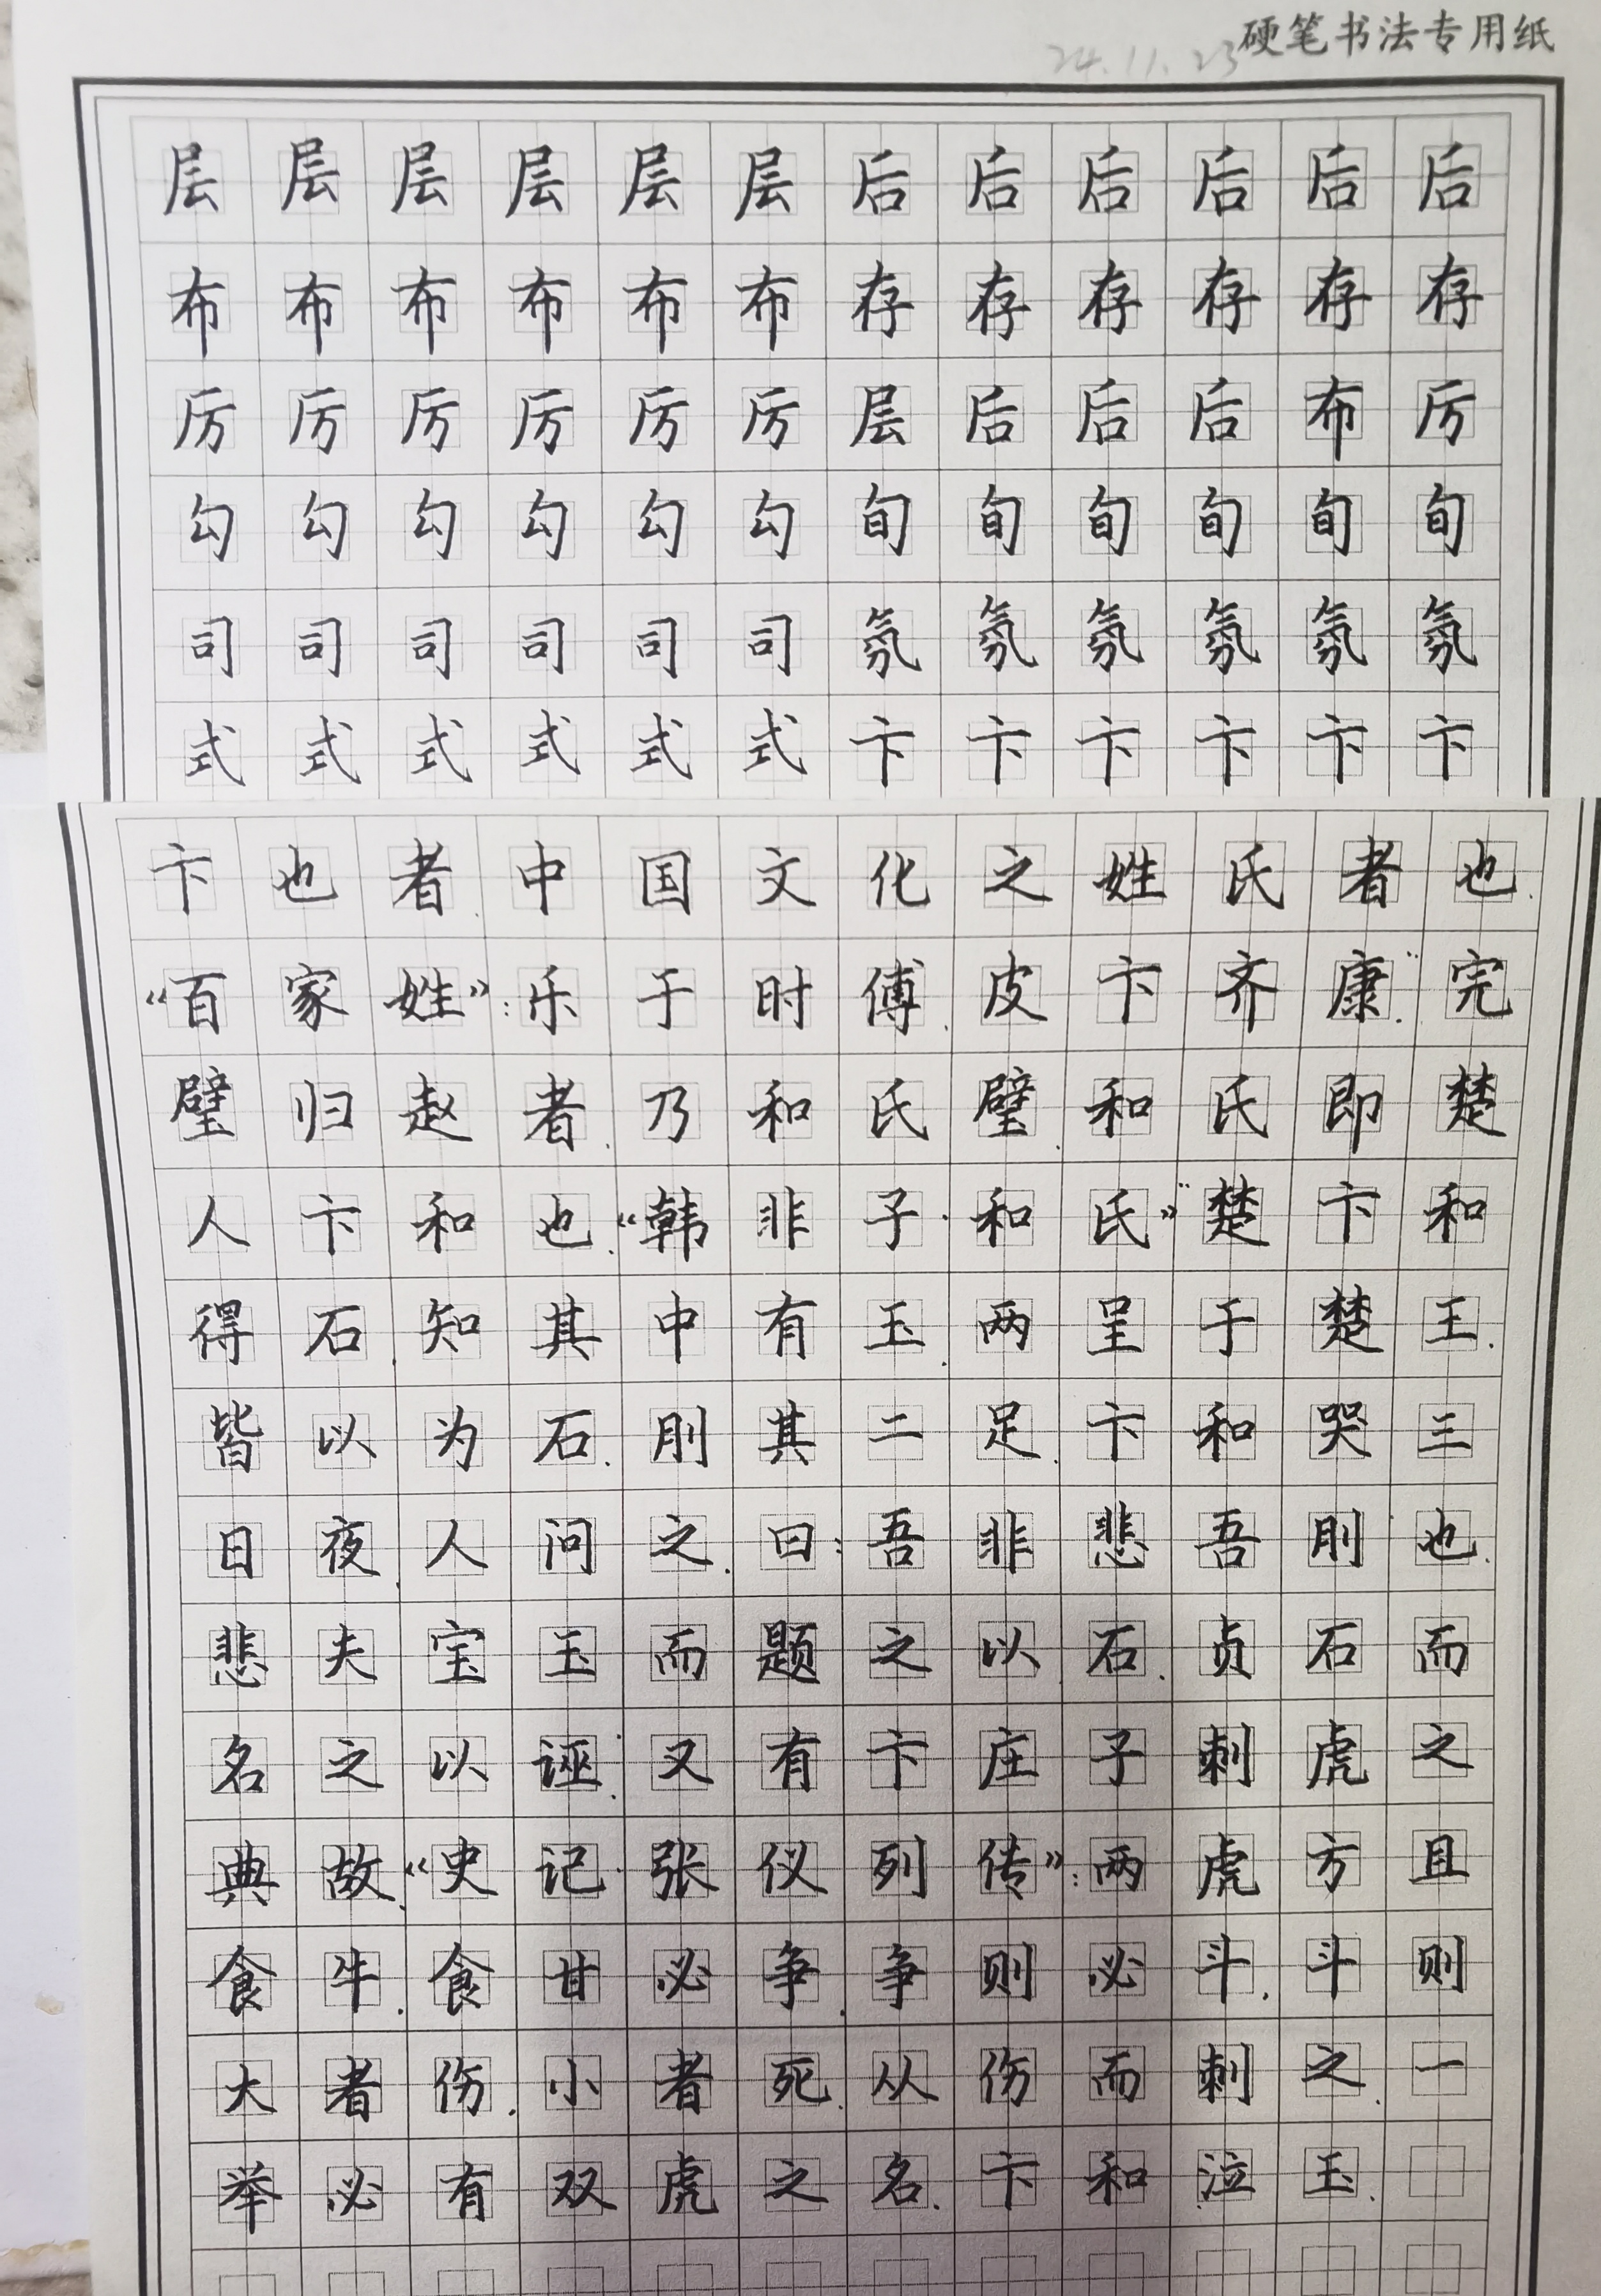 硬笔书法专用纸
24.11.23
层层层层层层后后后后后后
布布布布布布存存存存存存
厉厉厉厉厉厉层后后后布厉
勾勾勾勾勾勾旬旬旬旬旬旬
司司司司司司氛氛氛氛氛氛
式式式式式式卞卞卞卞卞卞
卞也者.中国文化之姓氏者也.
《百家姓》:乐于时傅.皮卞齐康.”完
璧归赵者.乃和氏璧.和氏即楚
人卞和也.《韩非子·和氏》“楚卞和
得石.知其中有玉.两呈于楚王.
皆以为石.刖其二足.卞和哭三
日夜.人问之.曰:吾非悲吾刖也.
悲夫宝玉而题之以石.贞石而
名之以诬.又有卞庄子刺虎之
典故.《史记·张仪列传》:两虎方且
食牛.食甘必争.争则必斗.斗则
大者伤.小者死.从伤而刺之.一
举必有双虎之名.卞和泣玉.